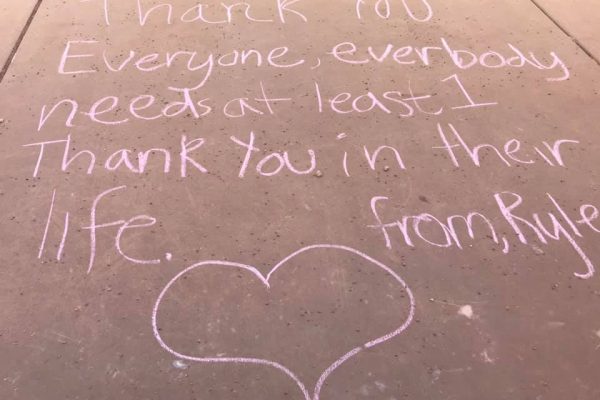 Thank You
Everyone, everbody
needs at least 1
Thank You in their
life. from, Ryle